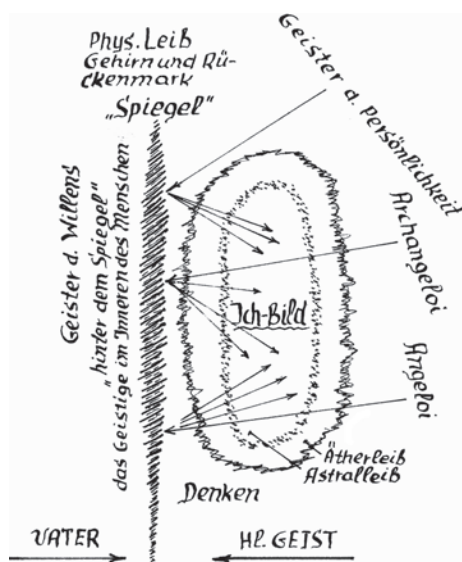 Phys. Leib
Gehirn und Rü-
ckenmark
„Spiegel"
Geister d. Persönlichkeit
Archangeloi
Angeloi
Geister d. Willens
"hinter dem Spiegel"
das Geistige im Inneren des Menschen
Ich-Bild
Ätherleib
Astralleib
Denken
VATER
Hl. GEIST